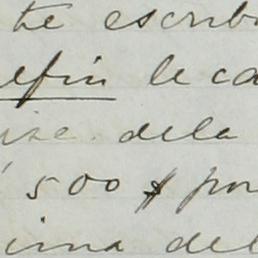 te escrib
elfin le ca
ise. dela
500 $ por
ima del